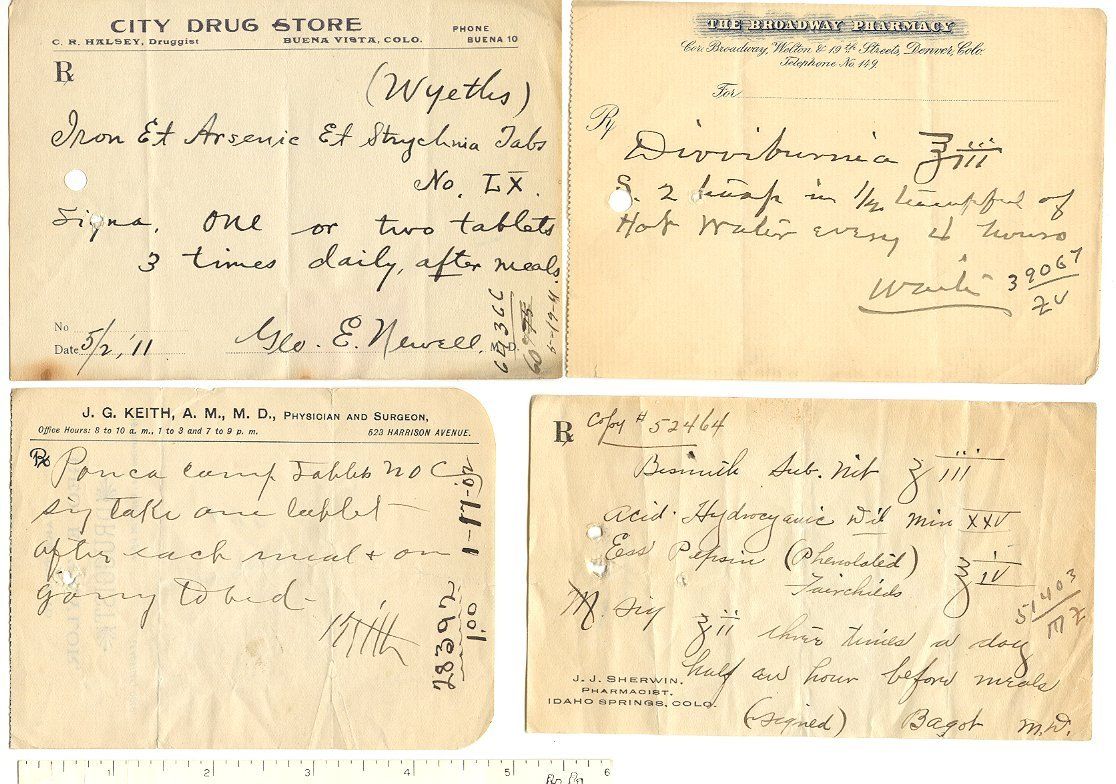 CITY DRUG STORE
C. R. HALSEY, Druggist BUENA VISTA, COLO.
PHONE
BUENA 10
℞
(Wyeths)
Iron Et Arsenic Et Strychnia Tabs
No. LX.
Signa. One or two tablets
3 times daily, after meals.
No
Date 5/2, '11
Geo. E. Newell, M. D.
THE BROADWAY PHARMACY
Cor. Broadway, Welton & 19th Streets, Denver, Colo.
Telephone No. 149.
For
℞
Dioviburnia ℥iii
S. 2 in 1/2 of
Hot Water every 4 hours
39067
J. G. KEITH, A. M., M. D., PHYSICIAN AND SURGEON,
Office Hours: 8 to 10 a. m., 1 to 3 and 7 to 9 p. m. 623 HARRISON AVENUE.
℞ Ponca comp Tablets no C
sig take one tablet
after each meal & on
going to bed.
Keith
28392
1.00
1-17-02
℞ Copy # 52464
Bismuth Sub. Nit ʒ iii
Acid. Hydrocyanic Dil min XXV
Ess Pepsin (Phenolated)
Fairchilds ℥ iv
M. Sig
ʒii three times a day
half an hour before meals
51403
J. J. SHERWIN,
PHARMACIST,
IDAHO SPRINGS, COLO.
(signed) Bagot M.D.
1 2 3 4 5 6